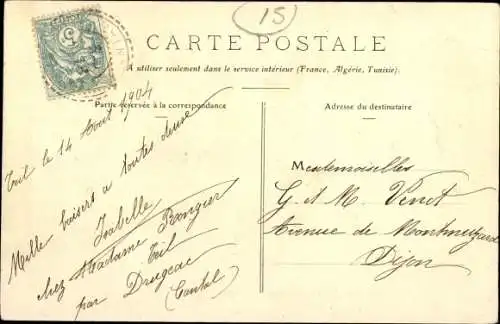 15
CARTE POSTALE
A utiliser seulement dans le service intérieur (France, Algérie, Tunisie).
Partie réservée à la correspondance
Adresse du destinataire
le 14 Août 1904
Mille baisers a toutes deux
Isabelle
chez Madame
par Drugeac
(Cantal)
Mesdemoiselles
G. et M. Venot
Avenue de Montmuzard
Dijon